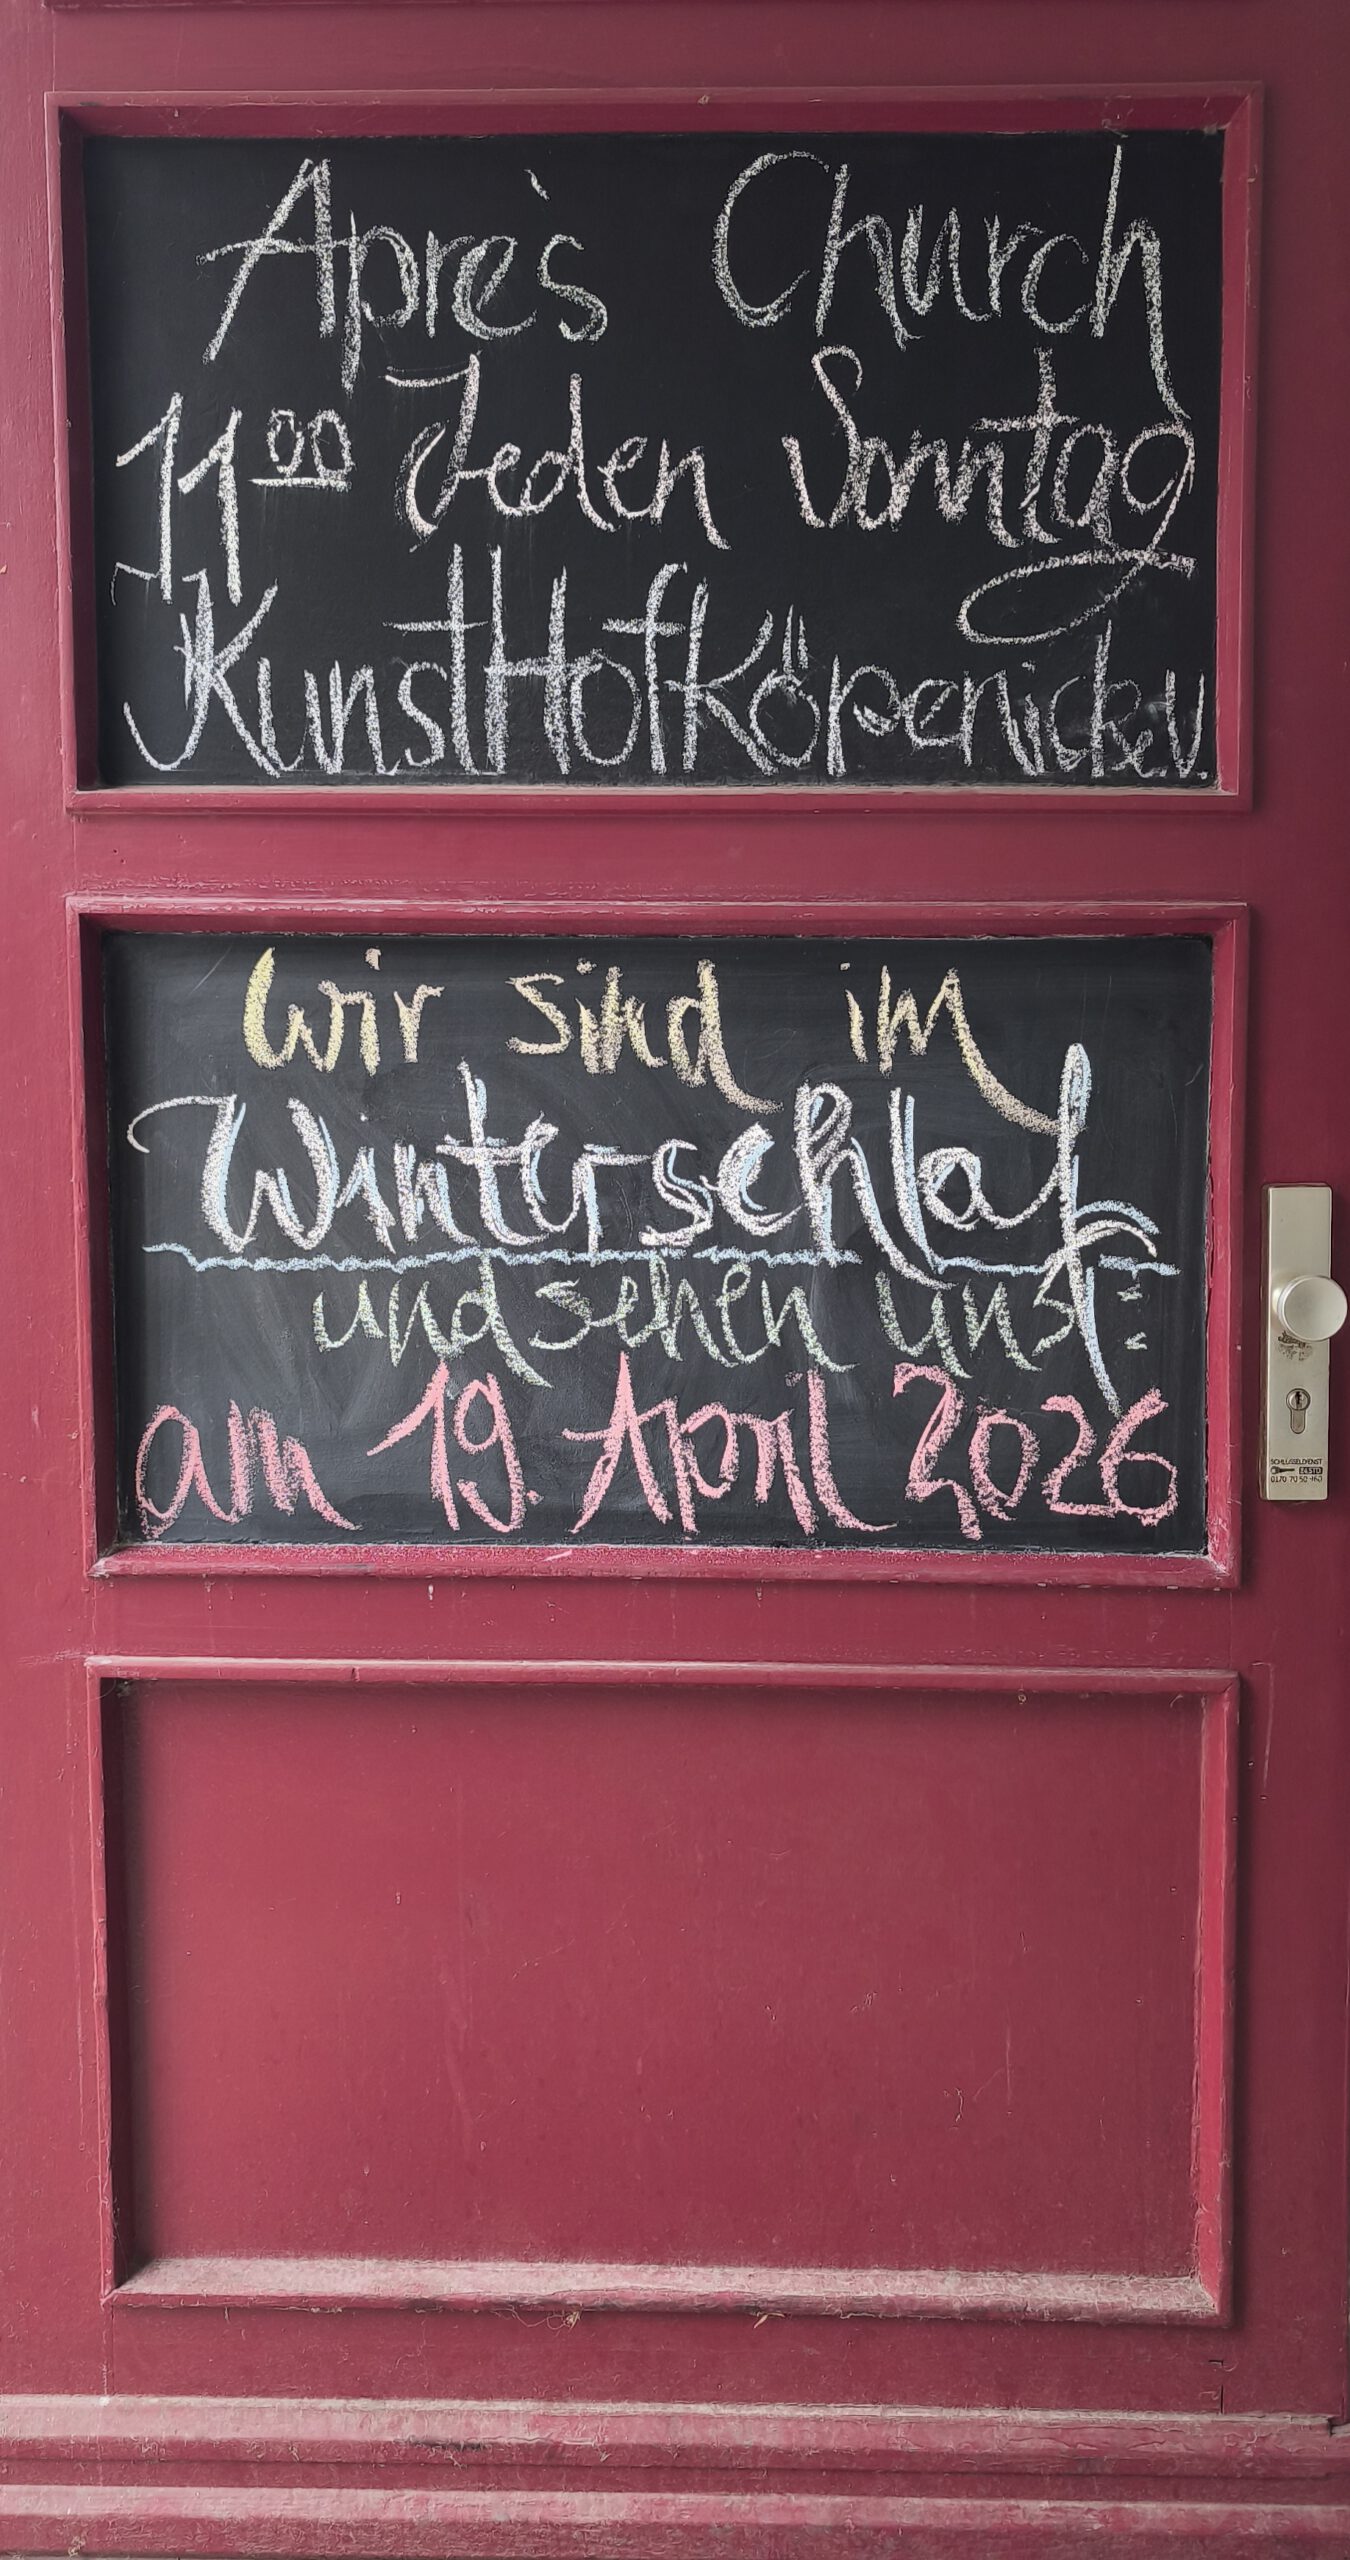 Aprè's Church
11⁰⁰ Jeden Sonntag
KunstHofKöpenick e.V.
Wir sind im
Winterschlaf
und sehen uns:
am 19. April 2026
SCHLÜSSELDIENST
24 STD